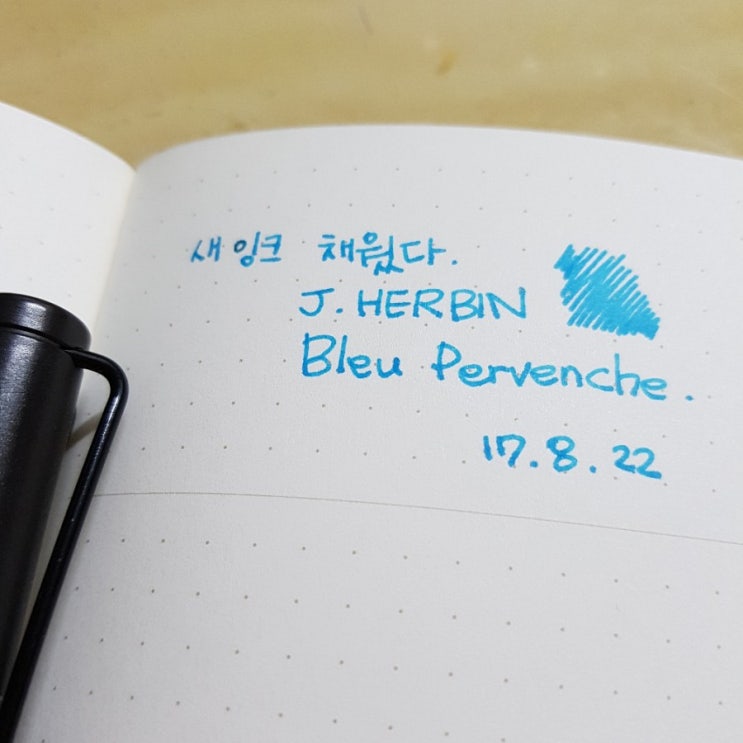 새 잉크 채웠다.
J. HERBIN
Bleu Pervenche.
17.8.22